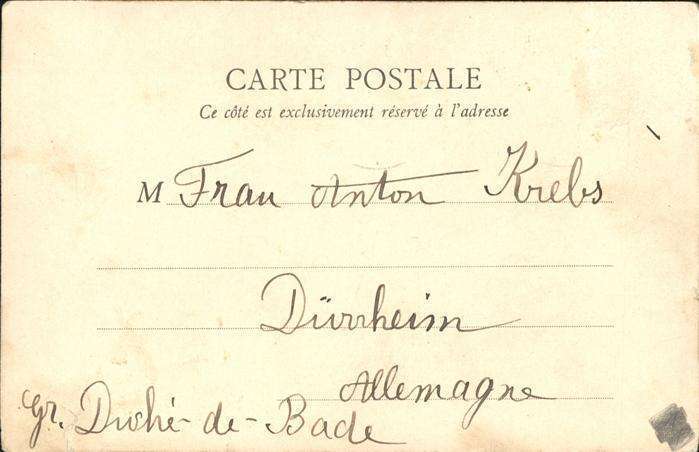 CARTE POSTALE
Ce côté est exclusivement réservé à l'adresse
M Frau Anton Krebs
Dürrheim
Allemagne
Gr. Duché-de-Bade